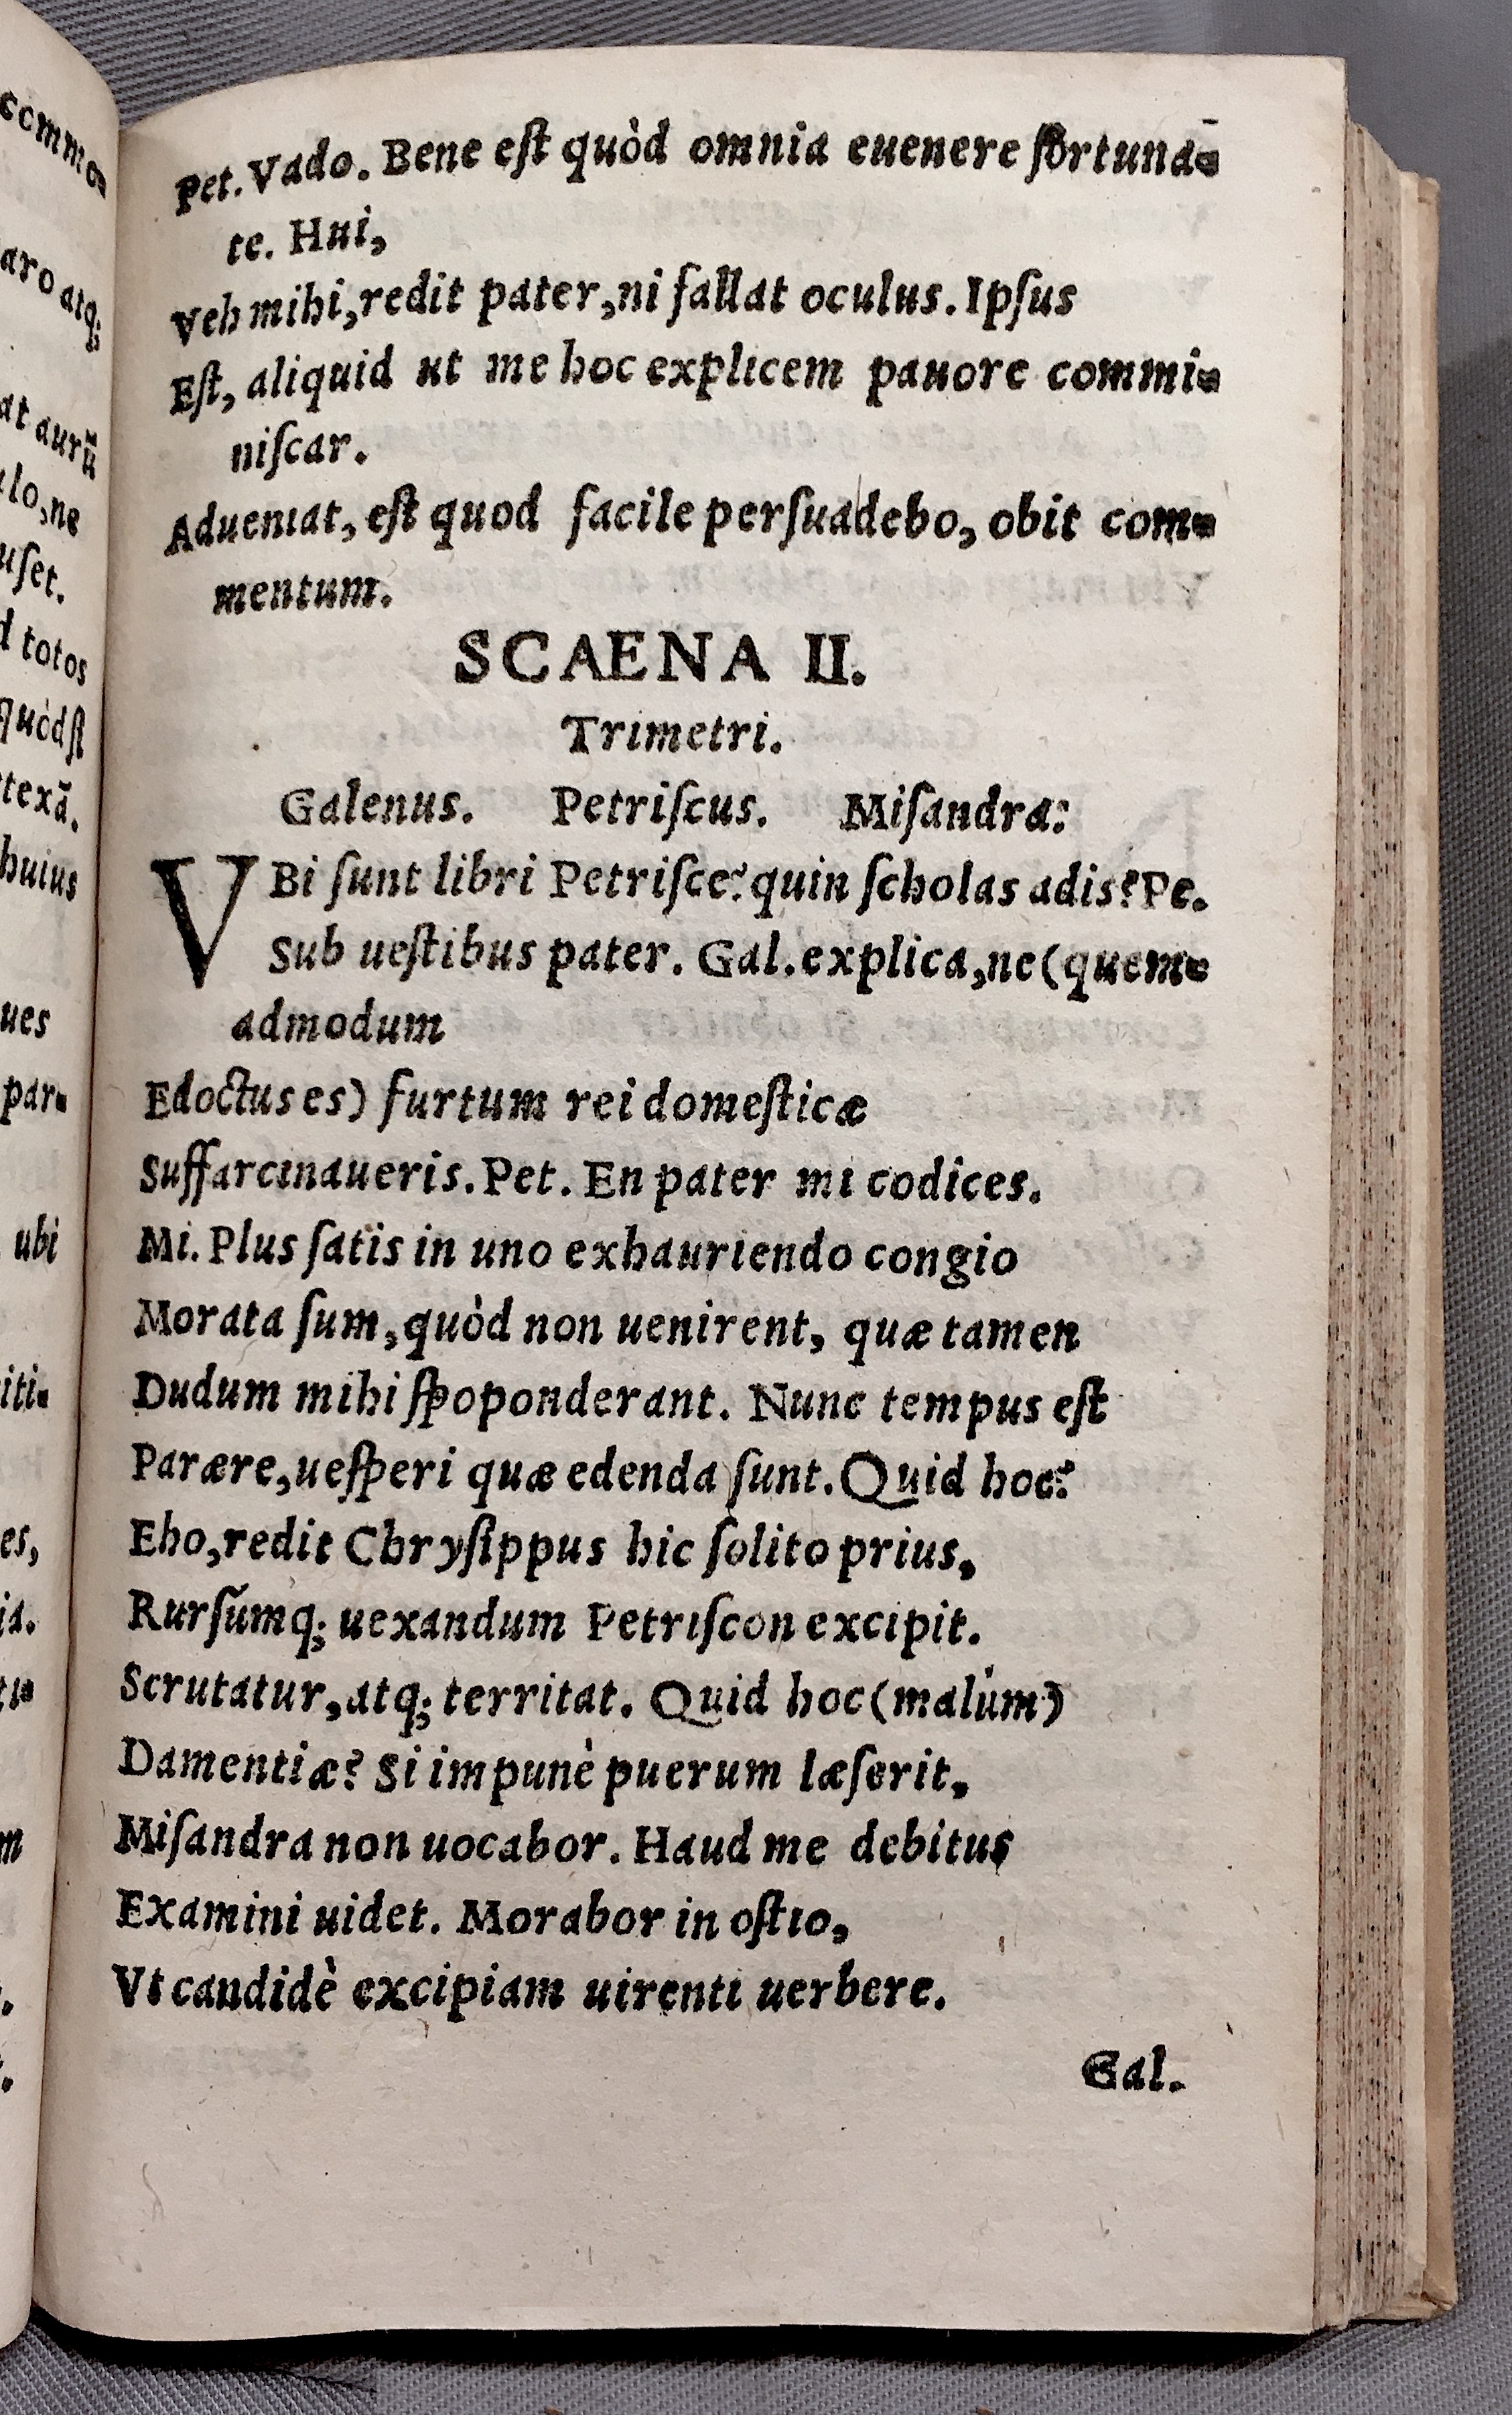 Pet. Vado. Bene eſt quòd omnia euenere fortuna-
te. Hui,
Veh mihi, redit pater, ni fallat oculus. Ipſus
Eſt, aliquid ut me hoc explicem pauore commi-
niſcar.
Adueniat, eſt quod facile perſuadebo, obit com-
mentum.
SCAENA II.
Trimetri.
Galenus. Petriſcus. Miſandra:
VBi ſunt libri Petriſce? quin ſcholas adis? Pe.
Sub ueſtibus pater. Gal. explica, ne (quem-
admodum
Edoctus es) furtum rei domeſticæ
Suffarcinaueris. Pet. En pater mi codices.
Mi. Plus ſatis in uno exhauriendo congio
Morata ſum, quòd non uenirent, quæ tamen
Dudum mihi ſpoponderant. Nunc tempus eſt
Paræere, ueſperi quæ edenda ſunt. Quid hoc?
Eho, redit Chryſippus hic ſolito prius,
Rurſũmq; uexandum Petriſcon excipit.
Scrutatur, atq; territat. Quid hoc (malùm)
Damentiæ? Si impunè puerum læſerit,
Miſandra non uocabor. Haud me debitus
Examini uidet. Morabor in oſtio,
Vt candidè excipiam uirenti uerbere.
Gal.
commen
aro atq;
at aurũ
ulo, ne
uſet.
d totos
quòdſt
texã.
huius
ues
par-
ubi
iti-
es,
ia.